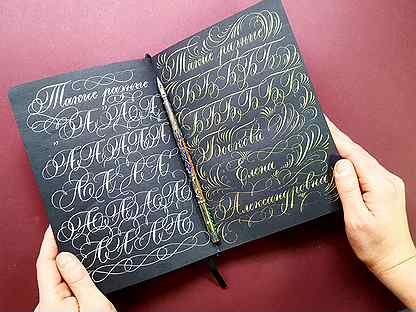 Такие разные
А А А А
А А А А А
А А А А
А А А А А
А А А А А
Такие разные
Б Б Б Б Б
Б Б Б Б Б
Елена
Александровна